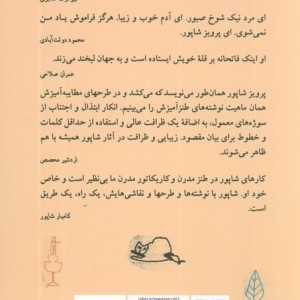 ای مرد نیک شوخ صبور. ای آدم خوب و زیبا. هرگز فراموش یاد من
نمی‌شوی. ای پرویز شاپور.
محمود دولت‌آبادی
او اینک فاتحانه بر قلهٔ خویش ایستاده است و به جهان لبخند می‌زند.
عمران صلاحی
پرویز شاپور همان‌طور می‌نویسد که می‌کشد و در طرحهای مطایبه‌آمیزش
همان ماهیت نوشته‌های طنزآمیزش را می‌بینیم. انکار ابتذال و اجتناب از
سوژه‌های معمول، به اضافهٔ یک ظرافت عالی و استفاده از حداقل کلمات
و خطوط برای بیان مقصود. زیبایی و ظرافت در آثار شاپور همیشه با هم
ظاهر می‌شوند.
اردشیر محصص
کارهای شاپور در طنز مدرن و کاریکاتور مدرن ما بی‌نظیر است و خاص
خود او. شاپور با نوشته‌ها و طرحها و نقاشی‌هایش، یک راه، یک طریق
است.
کامیار شاپور